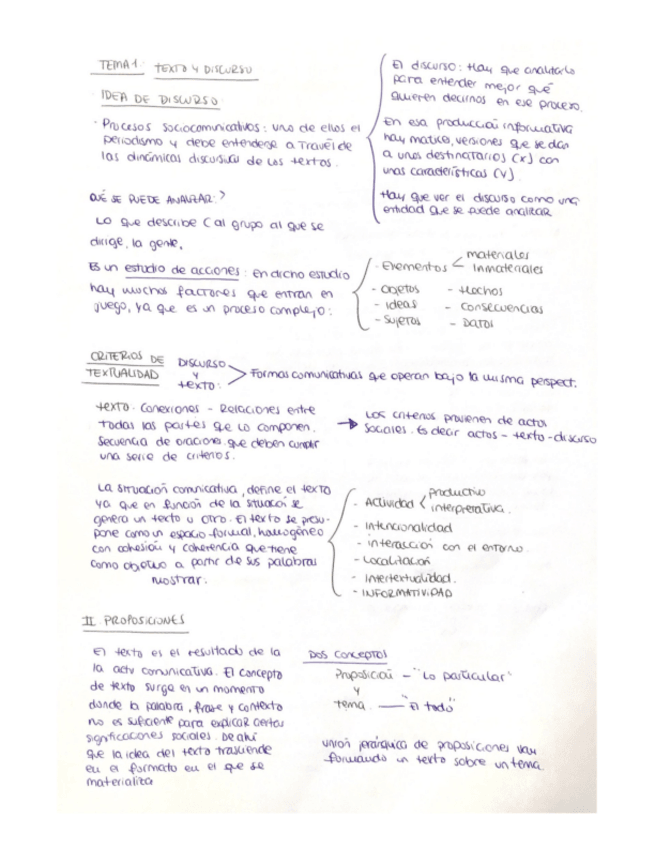 TEMA 1. TEXTO Y DISCURSO
IDEA DE DISCURSO
· Procesos sociocomunicativos: uno de ellos el
periodismo y debe entenderse a través de
las dinámicas discursivas de los textos.
El discurso: Hay que analizarlo
para entender mejor qué
quieren decirnos en ese proceso.
En esa producción informativa
hay matices, versiones que se dan
a unos destinatarios (x) con
unas características (y).
Hay que ver el discurso como una
entidad que se puede analizar
QUÉ SE PUEDE ANALIZAR?
Lo que describe (al grupo al que se
dirige, la gente,
Es un estudio de acciones: en dicho estudio
hay muchos factores que entran en
juego, ya que es un proceso complejo:
· Elementos < materiales
inmateriales
- Objetos - Hechos
- ideas - Consecuencias
- Sujetos - Datos
CRITERIOS DE
TEXTUALIDAD
DISCURSO
Y
texto:
Formas comunicativas que operan bajo la misma perspect.
texto. Conexiones - Relaciones entre
todas las partes que lo componen.
Secuencia de oraciones que deben cumplir
una serie de criterios.
Los criterios provienen de actos
sociales. Es decir actos - texto - discurso
La situación comnicativa, define el texto
ya que en función de la situación se
genera un texto u otro. El texto se presu-
pone como un espacio formal, homogéneo
con cohesión y coherencia que tiene
como objetivo a partir de sus palabras
mostrar.
- Actividad < productivo
interpretativa.
- Intencionalidad
- interacción con el entorno
- Localitación
- Intertextualidad.
- INFORMATIVIDAD
II. PROPOSICIONES
El texto es el resultado de la
la actv comunicativa. El concepto
de texto surge en un momento
donde la palabra, frase y contexto
no es suficiente para explicar ciertas
significaciones sociales. De ahí
que la idea del texto trasciende
en el formato en el que se
materializa
DOS CONCEPTOS
Proposición - "Lo particular"
y
tema. — "El todo"
unión jerárquica de proposiciones van
formando un texto sobre un tema.